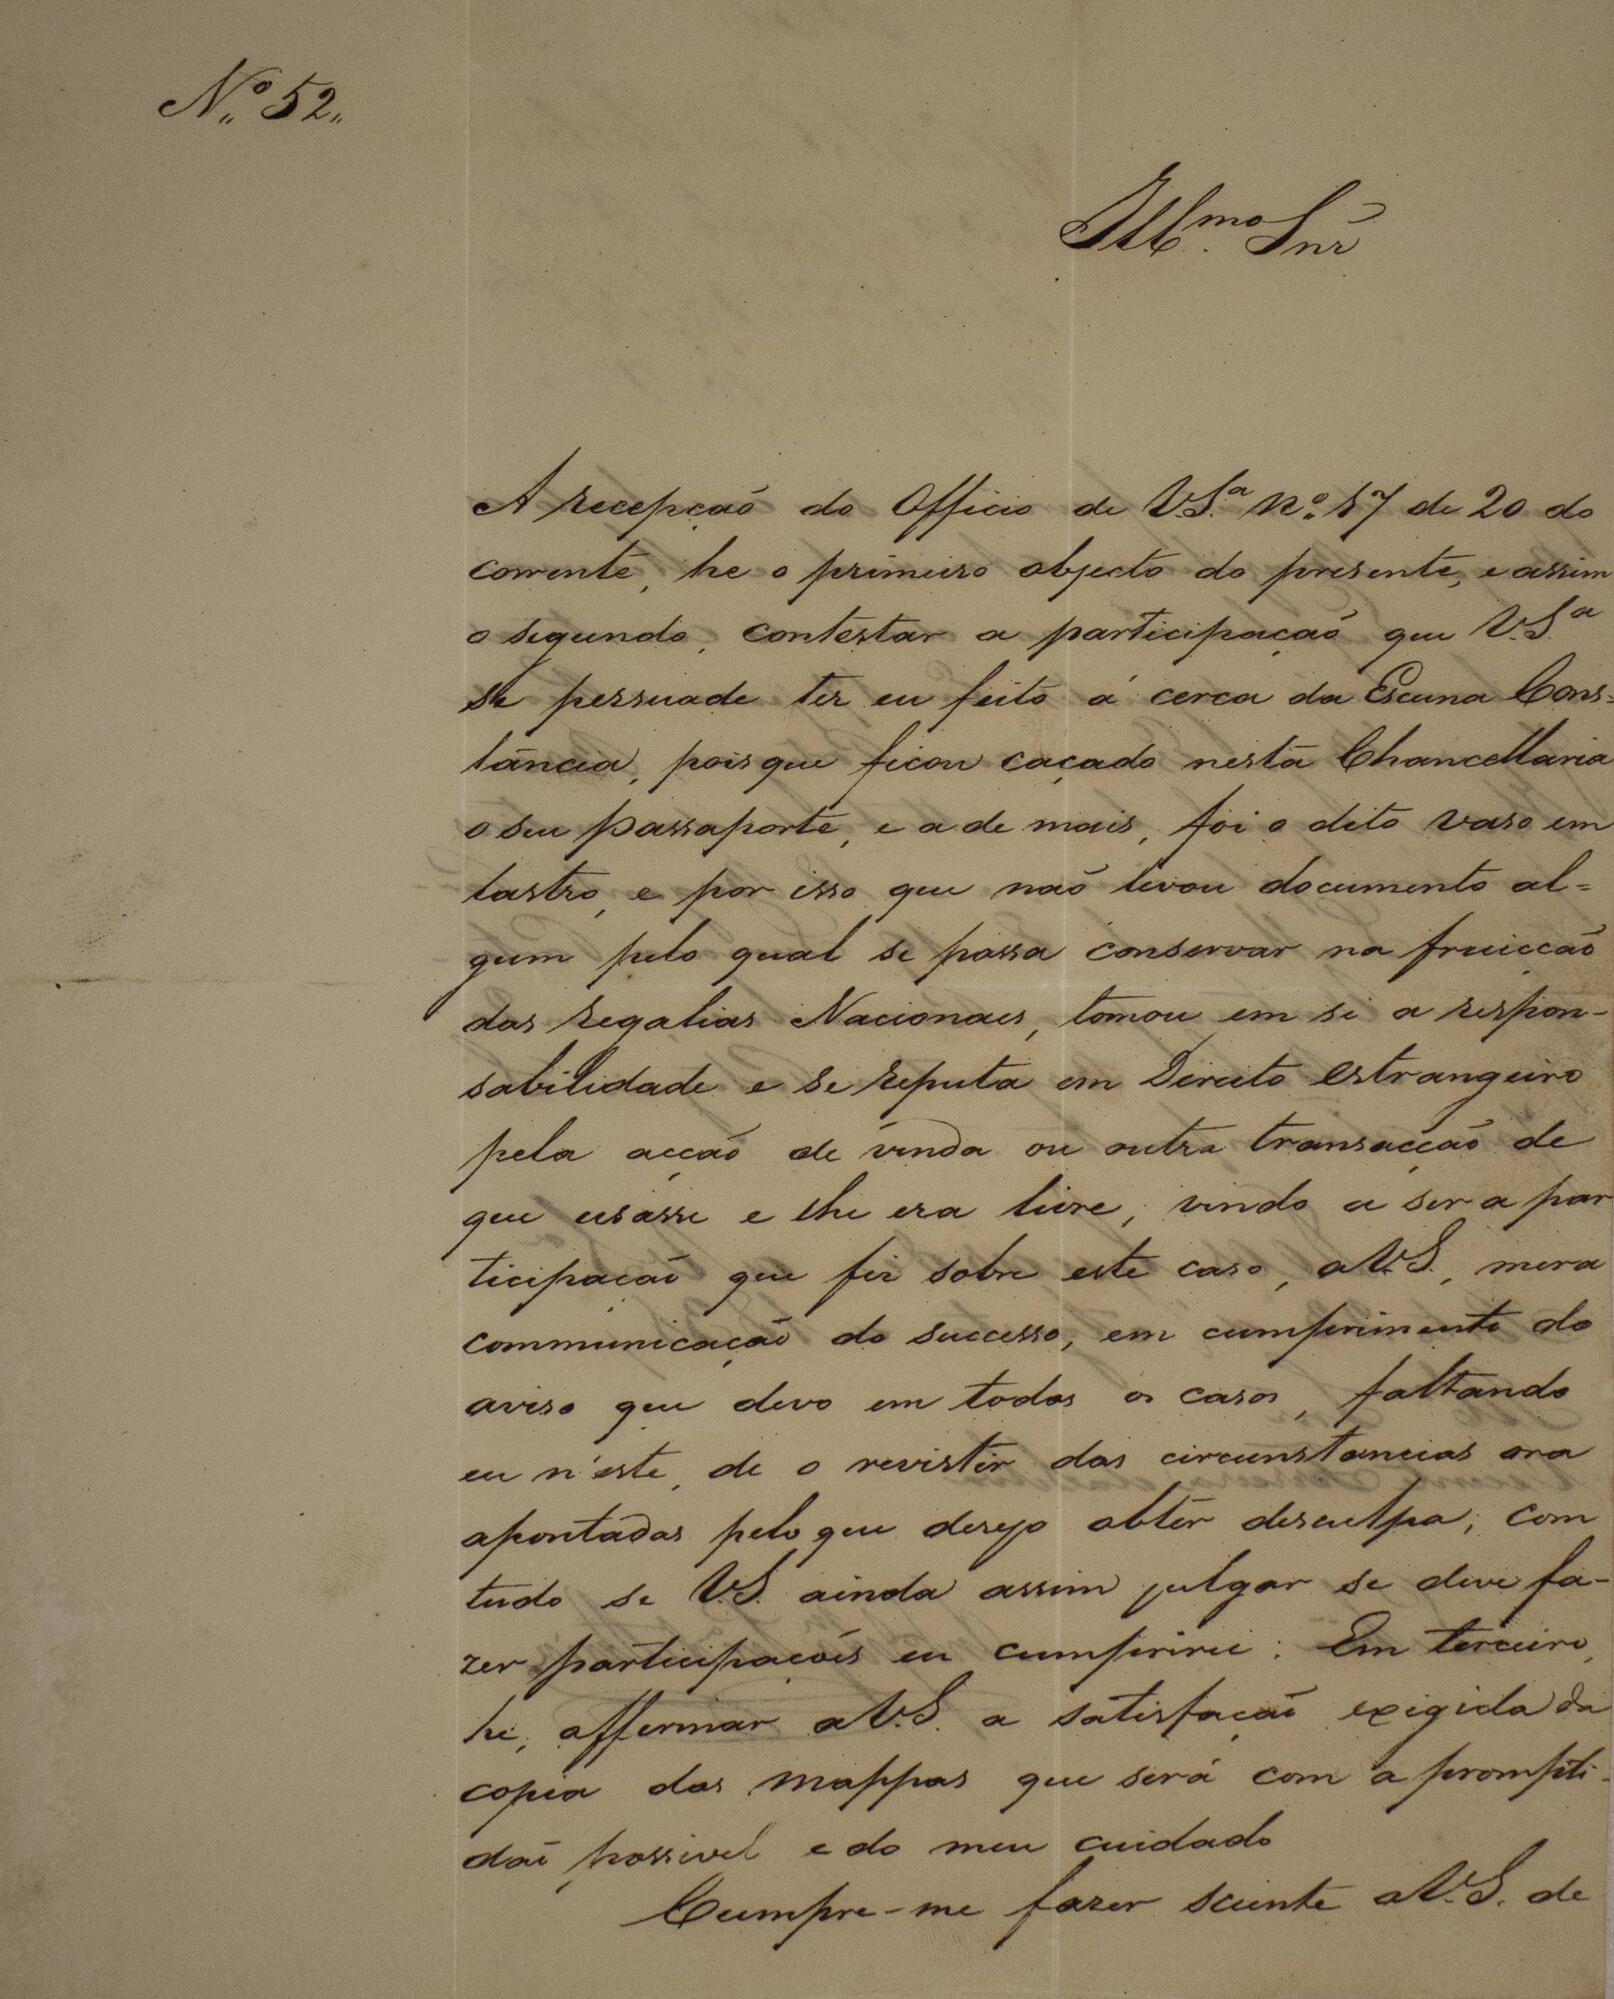 Nº 52
Illmo. Snr
A recepçaõ do Officio de V.Sª Nº 57 de 20 do
corrente, he o primeiro objecto do presente, e assim
o segundo, contestar a participaçaõ que V.Sª
se persuade ter eu feito á cerca da Escuna Cons=
tância, pois que ficou caçado nesta Chancellaria
o seu passaporte, e a de mais, foi o dito vaso em
lastro, e por isso que naõ levou documento al=
gum pelo qual se possa conservar na fruicçaõ
das regalias Nacionaes, tomou em si a respon-
sabilidade e se reputa em Direito estrangeiro
pela acçaõ de venda ou outra transacçaõ de
que usasse e lhe era livre, vindo a ser a par
ticipaçaõ que fiz sobre este caso, a V.S., mera
communicaçaõ do successo, em cumprimento do
aviso que devo em todos os casos, faltando
eu n'este, de o revistir das circunstancias ora
apontadas pelo que desejo obter desculpa; com
tudo se V.S. ainda assim julgar se deve fa-
zer participaçoẽs eu cumprirei: Em terceiro,
he, affirmar a V.S. a satisfaçaõ exigida da
copia dos mappas que será com a prompti-
daõ possivel e do meu cuidado
Cumpre-me fazer sciente a V.S. de